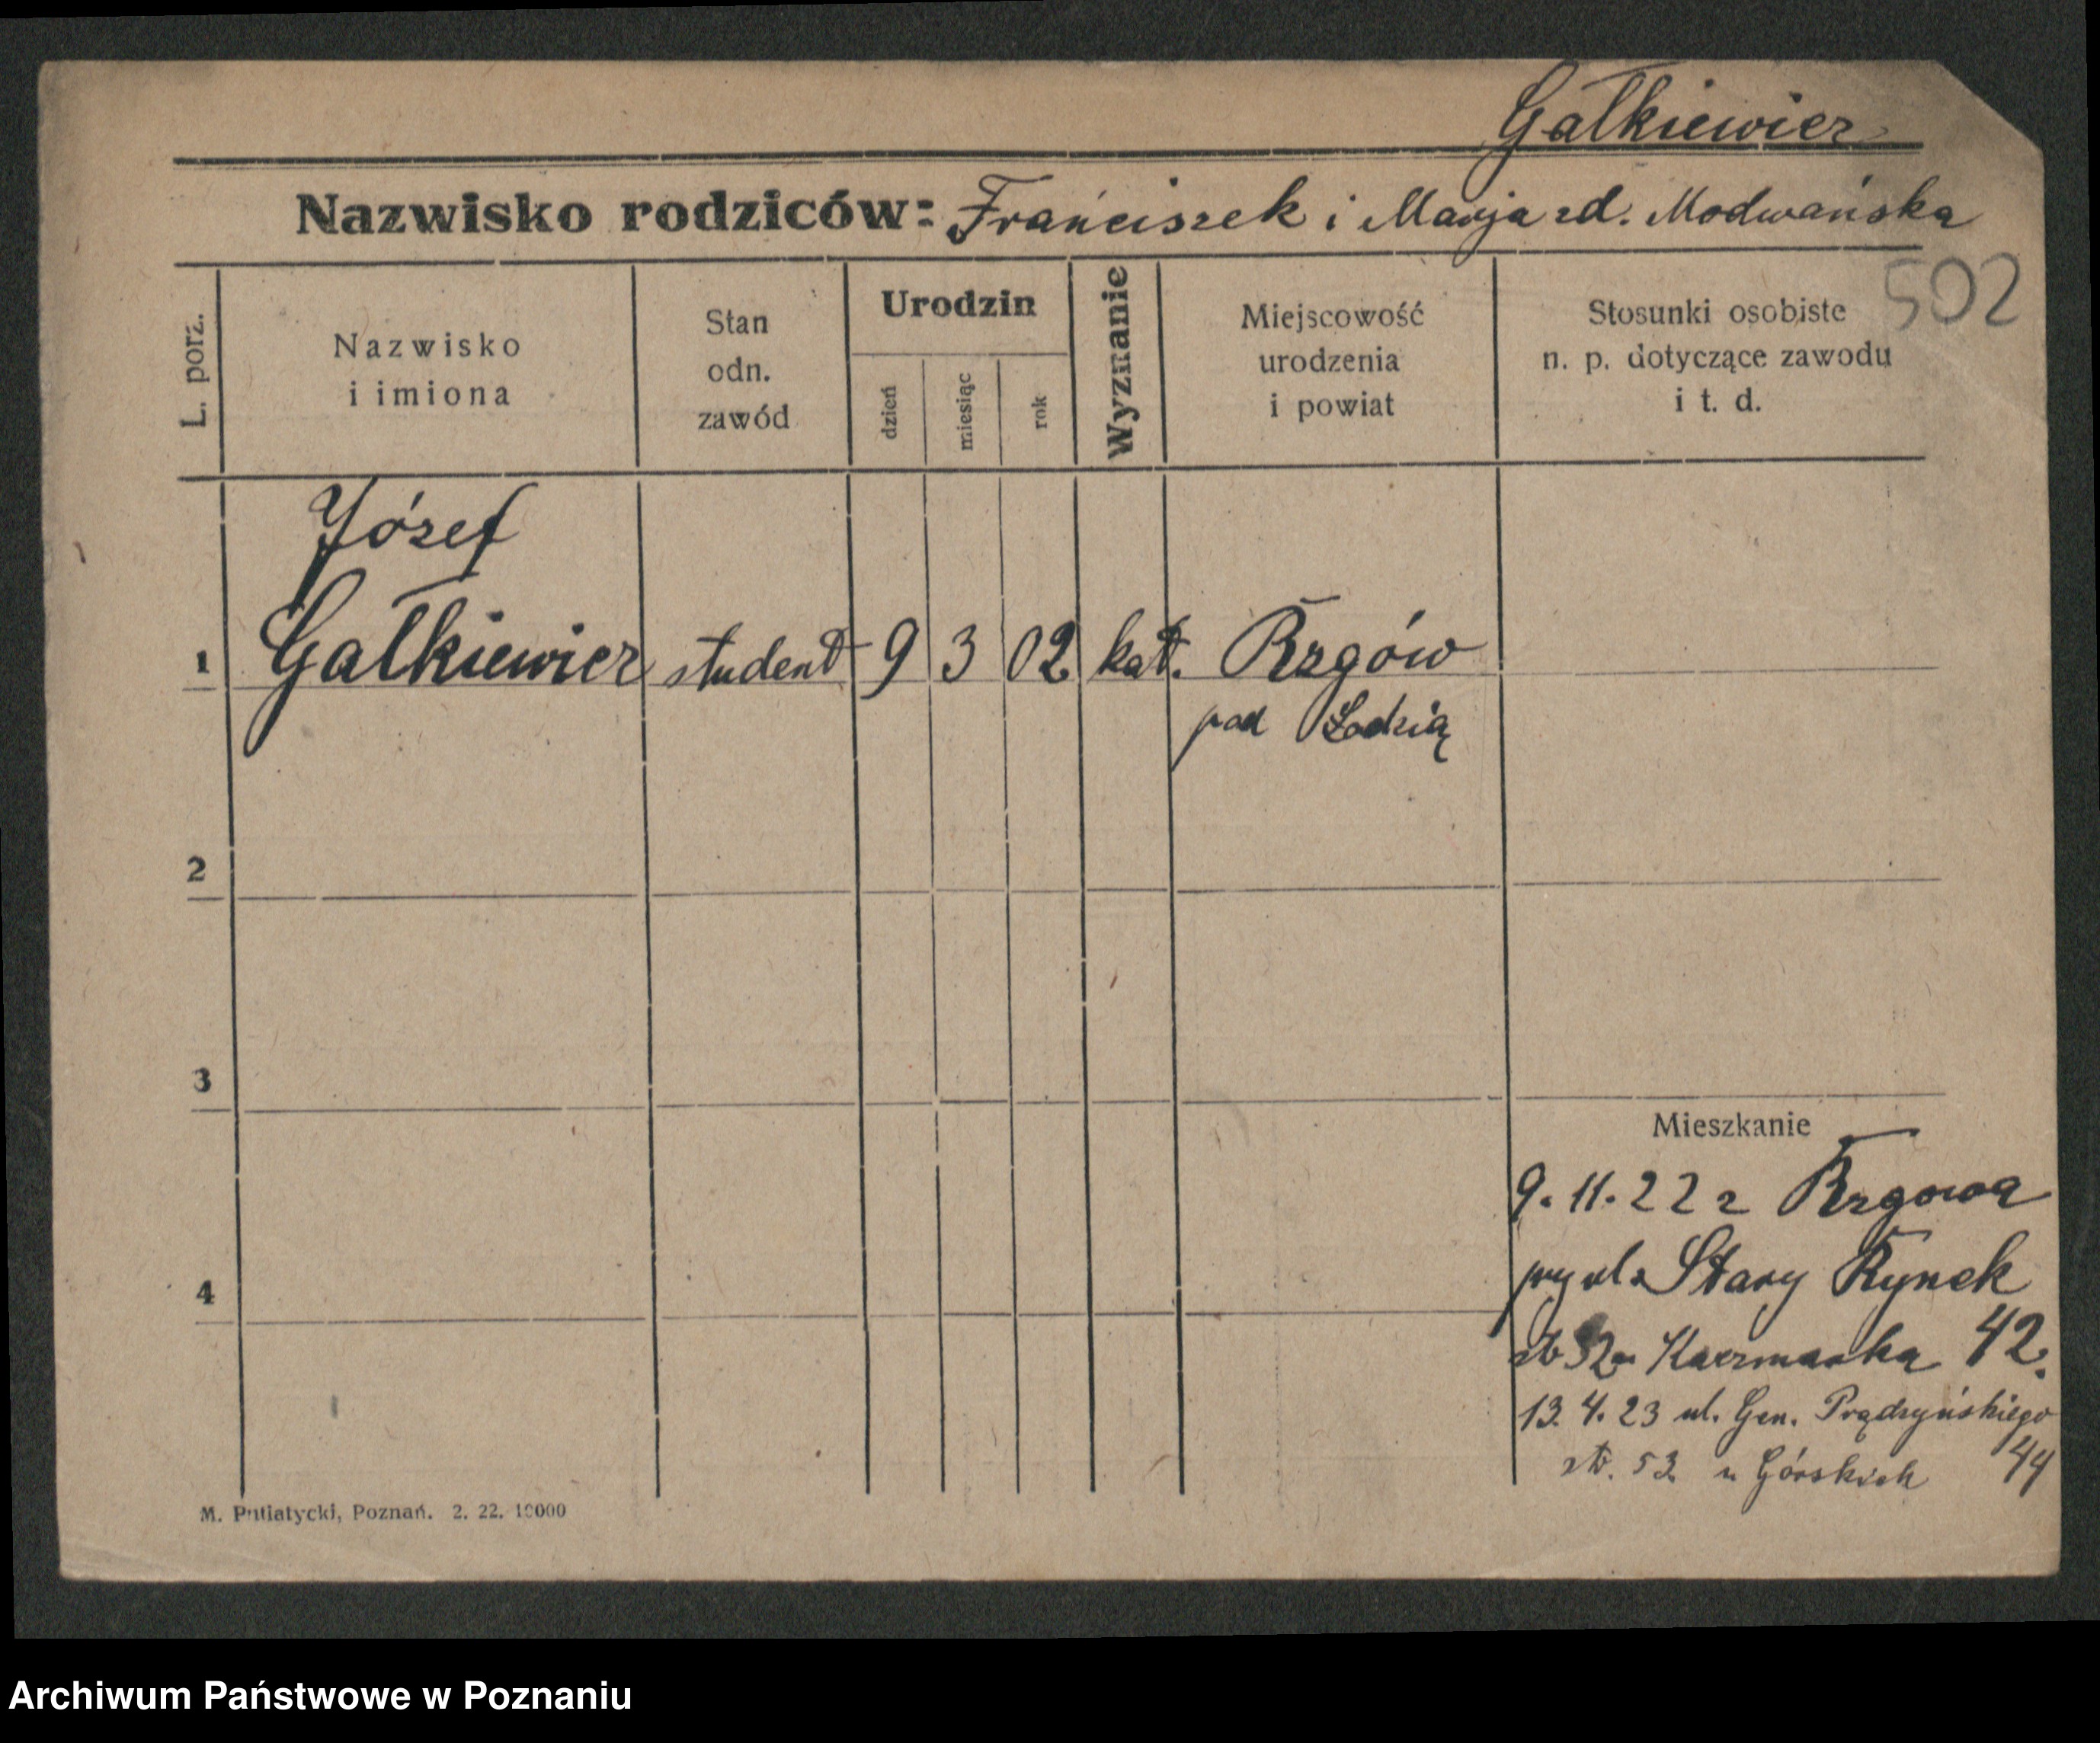 Gałkiewicz
Nazwisko rodziców: Franciszek i Marja zd. Modwańska
502
L. porz.
Nazwisko
i imiona
Stan
odn.
zawód
Urodzin
dzień
miesiąc
rok
Wyznanie
Miejscowość
urodzenia
i powiat
Stosunki osobiste
n. p. dotyczące zawodu
i t. d.
Józef
1 Gałkiewicz student 9 3 02 kat. Rzgów
pod Łodzią
2
3
4
Mieszkanie
9.11.22 z Rzgowa
Stary Rynek
Kaczmarka 42.
13.4.23 ul. Gen. Prądzyńskiego
53. u Górskich 44
M. Putiatycki, Poznań. 2. 22. 10000
Archiwum Państwowe w Poznaniu